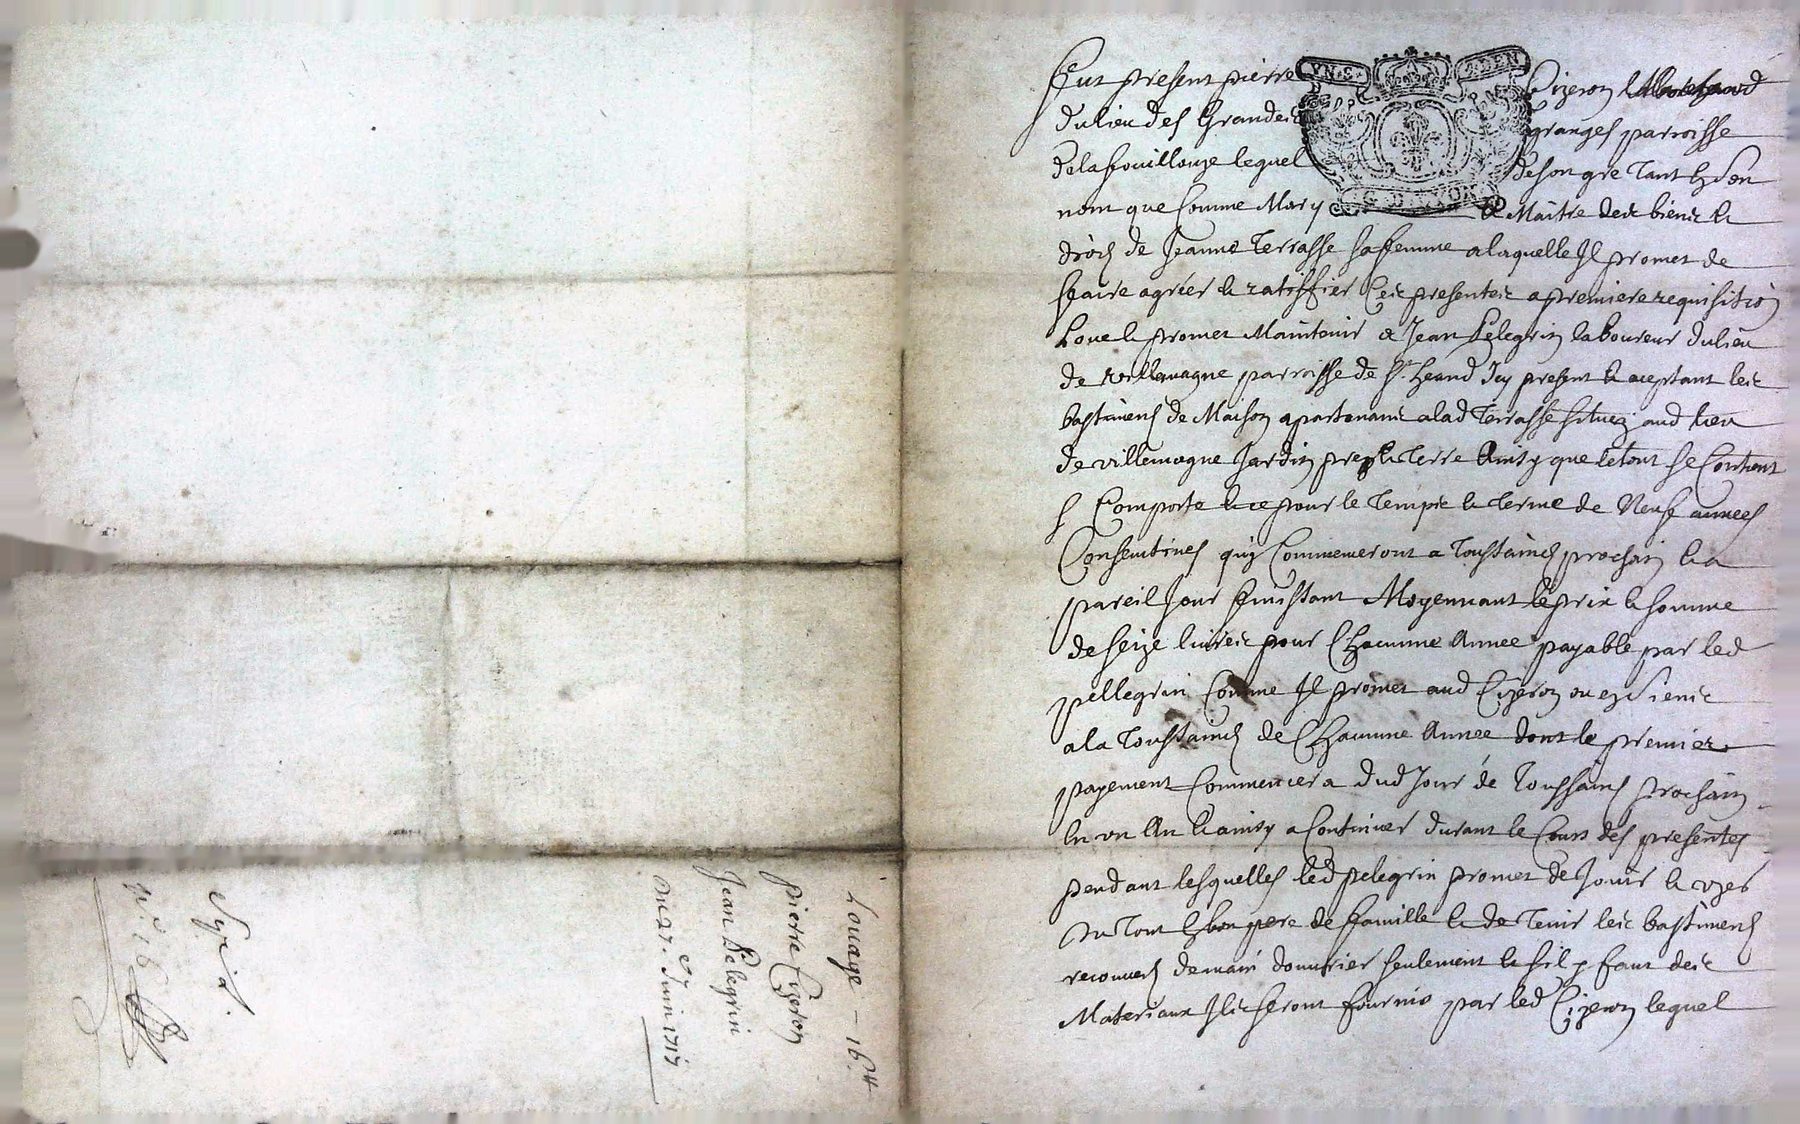 Louage – 16 ₶
pierre Cizeron
Jean Pelegrin
du 27.e Juin 1717
N.o 16
VN. S. DDEN
G. D. LYON
Feut present pierre Cizeron Marchand
du lieu des Grandes granges parroisse
de la fouillouze lequel de son gre tant en son
nom que Comme Mary & Maitre des biens &
drois de Jeanne Terrasse sa femme a laquelle Jl promet de
faire agréer & ratiffier Ces presentes a premiere requisition
Loue & promet Maintenir a Jean Pelegrin laboureur du lieu
de villemagne parroisse de St heand Jcy present & aceptant les
bastimens de Maison apartenans a lad Terrasse situez aud lieu
de villemagne Jardin prez & terre Ainsy que le tout se Contient
& Comporte & ce pour le temps & terme de Neuf années
Consecutives quy Commenceront a toussaincts prochain & a
pareil Jour finissant Moyennant le prix & somme
de seize livres pour Chacunne Année payable par led
pellegrin Comme Jl promet aud Cizeron ou es siens
a la toussaincts de Chacunne Année dont le premier
payement Commencera dud Jour de toussaints prochain
en un An & ainsy a Continuer durant le Cours des presentes
pendant lesquelles led pelegrin promet de Jouir & uzer
du tout en bon pere de famille & de tenir les bastimens
recouvers de main douvrier seulement & sil y faut des
Materiaux Jls seront fournis par led Cizeron lequel